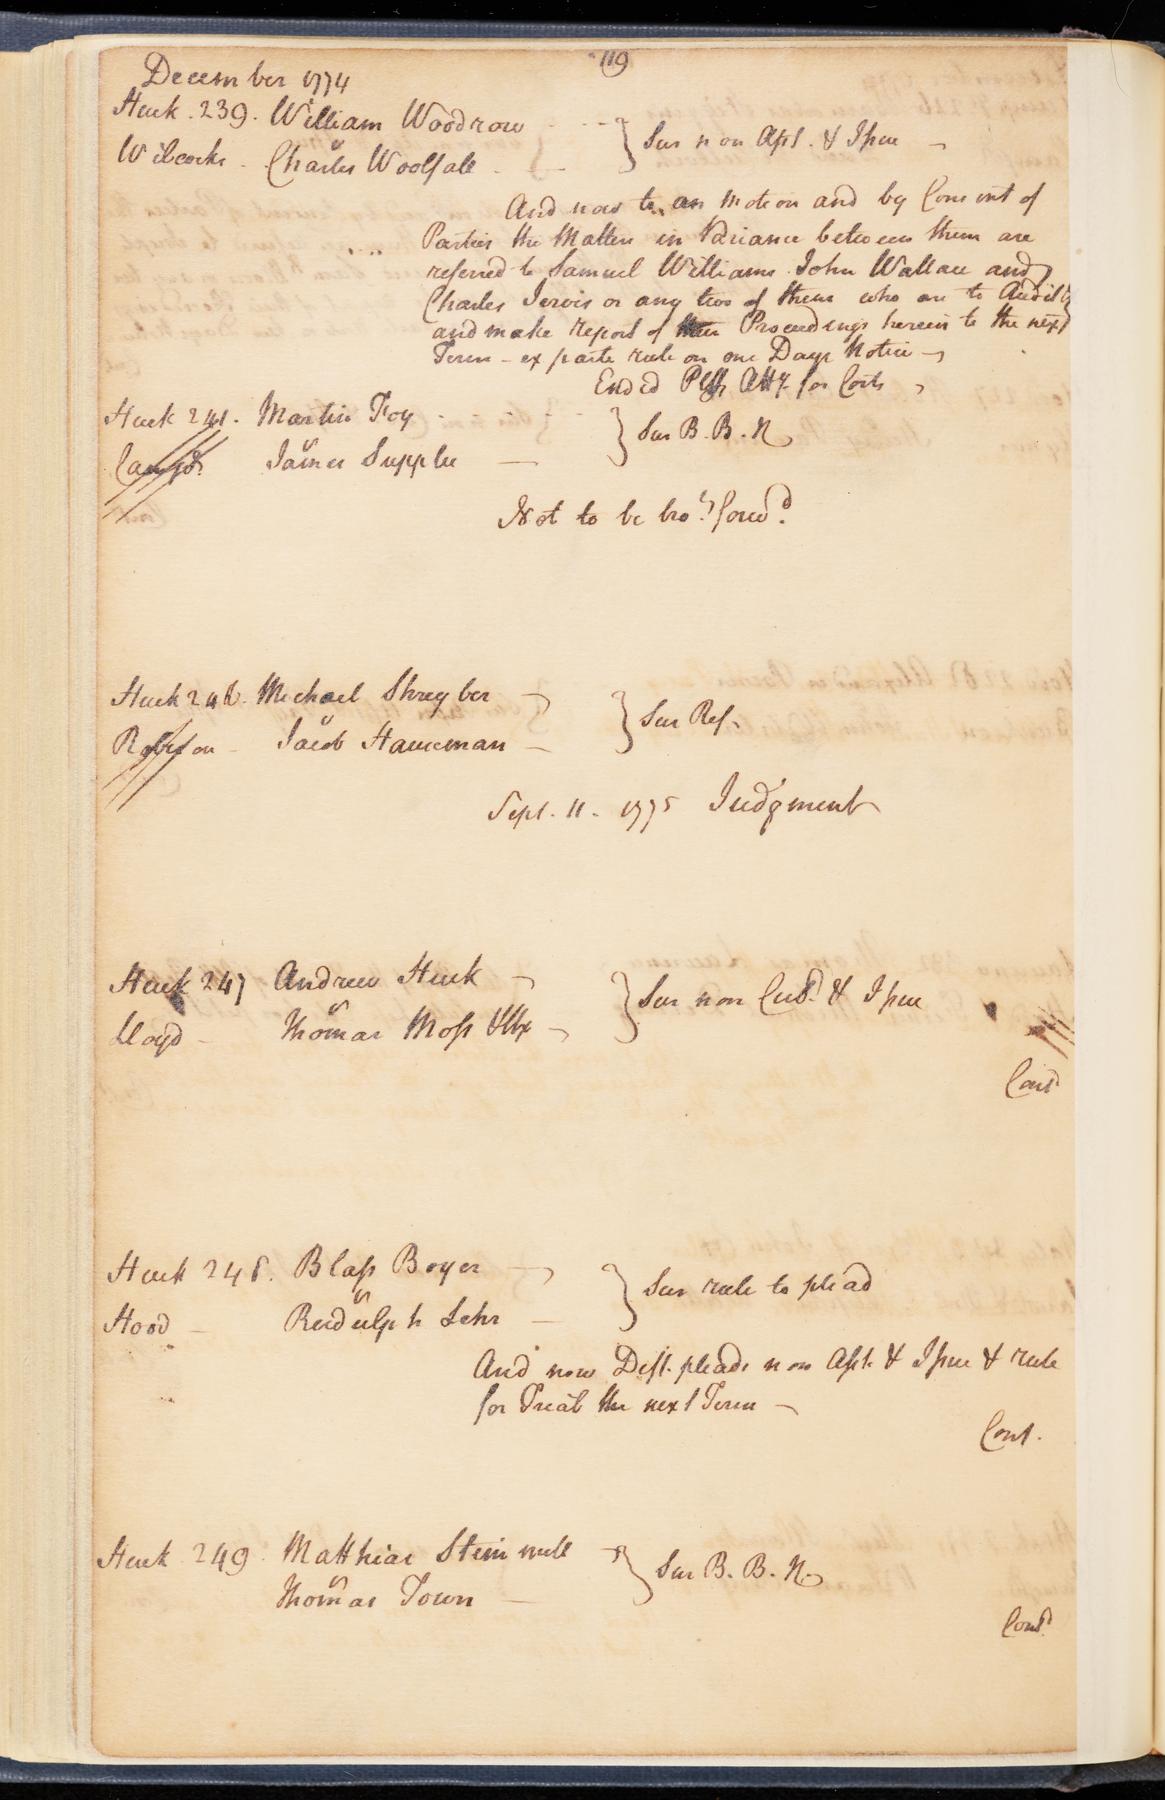 119
December 1774
Huck. 239. William Woodrow } Sur non Aſst. & Iſsue
Wilcocks - vs Charles Woolfall
And now to on motion and by Consent of
Parties the Matters in Variance between them are
referred to Samuel Williams John Wallace and
Charles Jervis or any two of them who are to Audit &
and make report of their Proceedings herein to the next
Term - ex parte rule on one Days Notice
Ended Plffs Atty. for Costs
Huck 241. Martin Foy } Sur B. B. N
vs James Supplee
Not to be brot. forwd.
Huck 246. Michael Shreyber } Sur Ref.
Robeson - vs Jacob Hauseman
Sept. 11. 1775 Judgment
Huck 247 Andrew Huck } Sur non Cul. & Iſsue
Lloyd - vs Thomas Moſs & Ux
Cont
Huck 248. Blaſs Boyer } Sur rule to plead
Hood - vs Rudulph Lehr
And now Deft. pleads non Aſst. & Iſsue & rule
for Trial the next Term
Cont.
Huck 249 Matthias Steinmull } Sur B. B. N.
vs Thomas Town
Contd.